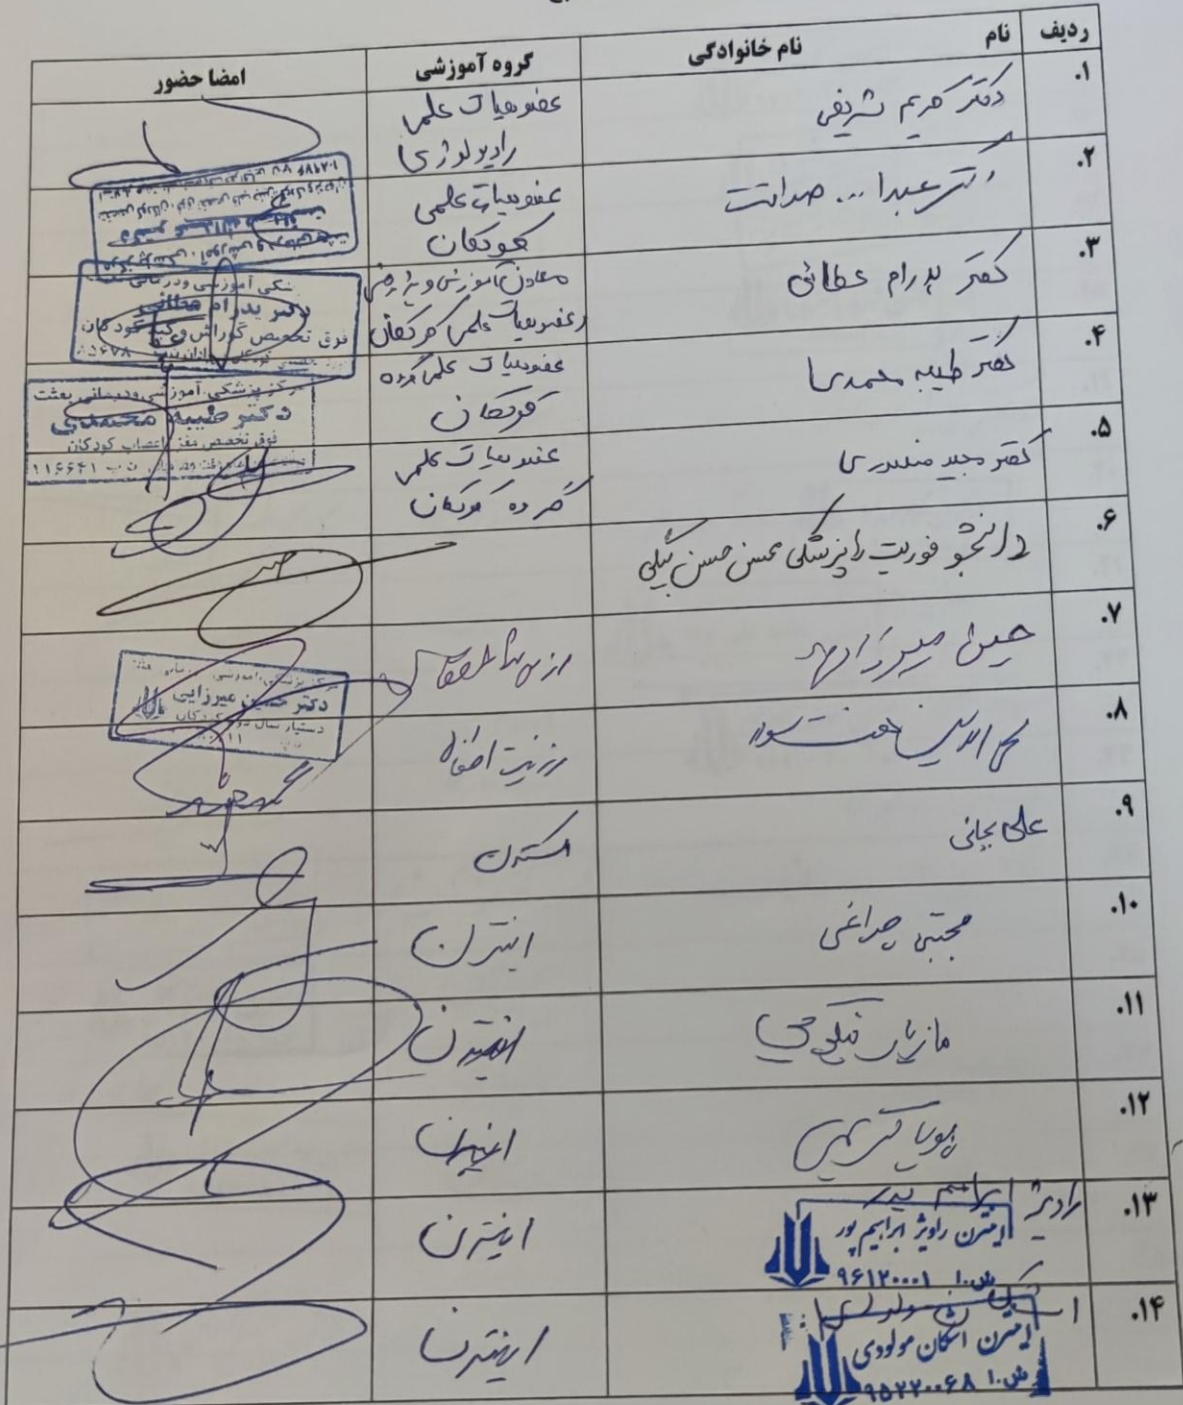 ردیف نام نام خانوادگی گروه آموزشی امضا حضور
۱. دکتر مریم شریفی عضو هیات علمی
رادیولوژی
۲. دکتر عبدا... صداقت عضو هیات علمی
کودکان
۳. دکتر پدرام عطائی معاون آموزشی و پژوهشی
و عضو هیات علمی کودکان
دکتر پدرام عطائی
فوق تخصص گوارش و کبد کودکان
۴. دکتر طیبه محمدی عضو هیات علمی گروه
کودکان
مرکز پزشکی، آموزشی ودرمانی بعثت
دکتر طیبه محمدی
فوق تخصص مغز و اعصاب کودکان
۱۱۶۶۴۱
۵. دکتر مجید منصوری عضو هیات علمی
گروه کودکان
۶. دانشجو فوریت پزشکی محسن حسن بیگی
۷. حسین میرزایی
دکتر حسین میرزایی
دستیار سال کودکان
۸. رزیدنت اطفال
۹. علی بجانی اکسترن
۱۰. مجتبی چراغی اینترن
۱۱. مازیار اینترن
۱۲. پویا کریمی اینترن
۱۳. راویژ ابراهیم پور اینترن
اینترن راویژ ابراهیم پور
ش.د ۹۶۱۲۰۰۰۱
۱۴. اشکان مولودی اینترن
اینترن اشکان مولودی
ش.د ۹۵۲۲۰۰۶۸